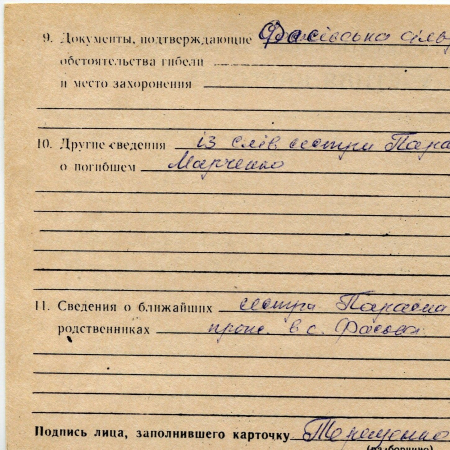 9. Документы, подтверждающие Фасівська сіль
обстоятельства гибели
и место захоронения
10. Другие сведения із слів сестри Пара
о погибшем Марченко
11. Сведения о ближайших сестра Параска
родственниках прож. в с. Фасова
Подпись лица, заполнившего карточку Терещенко
(разборчиво)